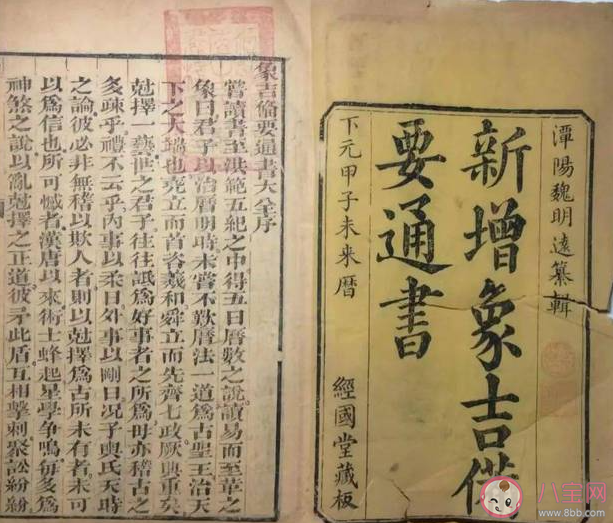 潭陽魏明遠纂輯
新增象吉偹
要通書
下元甲子未来暦
經國堂藏板
象吉偹要通書大全序
嘗讀書至洪範五紀之中得五日曆數之說讀易而至革之
象曰君子以治曆明時未嘗不歎曆法一道爲古聖王治天
下之大端也堯立而首咨羲和舜立而先齊七政厥典重矣
尅擇一藝世之君子往往詆爲好事者之所爲毋亦稽古之
多疎乎禮不云乎內事以柔日外事以剛日况子輿氏天時
之論彼必非無稽以欺人者則以尅擇爲古所未有者未可
以爲信也所可憾者漢唐以來術士蜂起星學争鳴每多爲
神煞之說以亂尅擇之正道彼矛此盾互相擊刺聚訟紛紛
八宝网
www.8bb.com